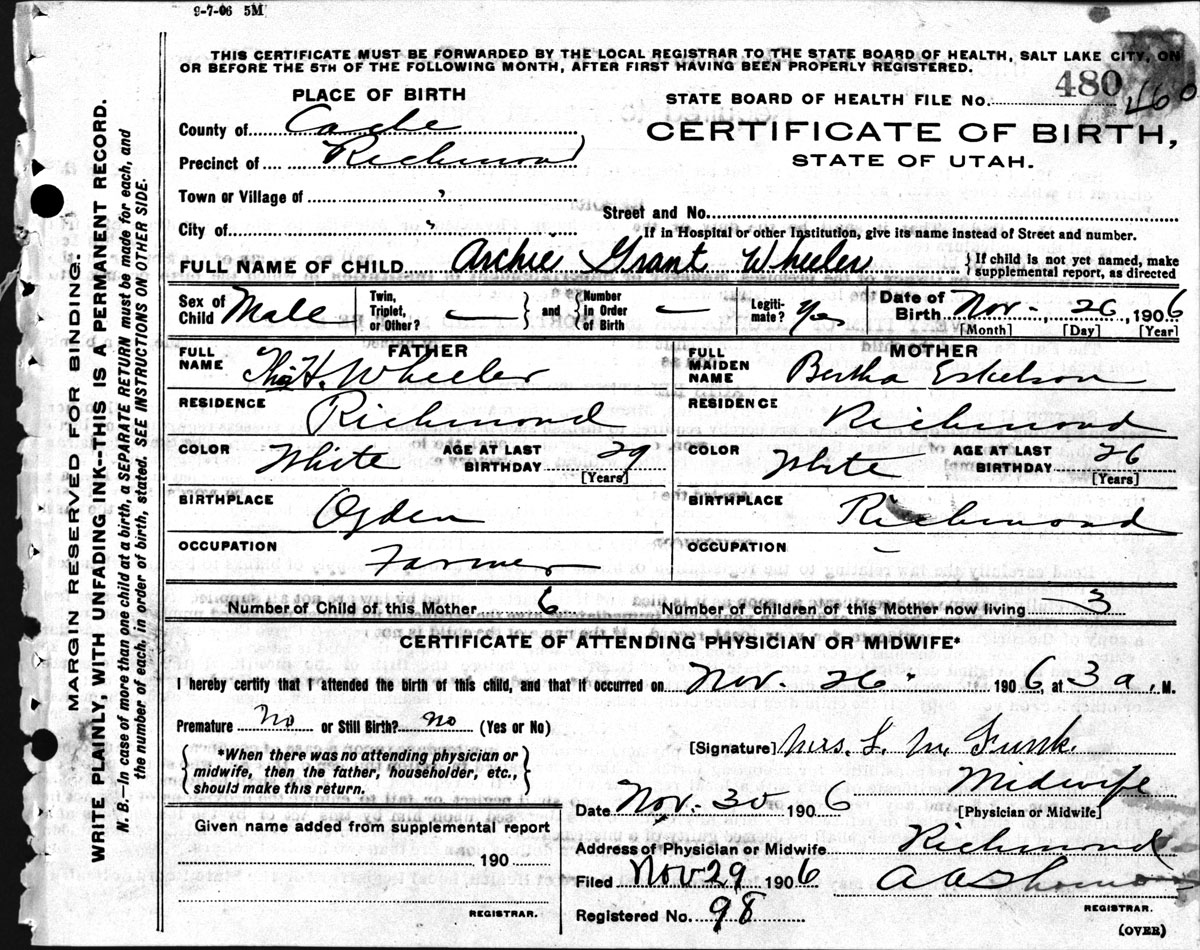 9-7-06 5M
THIS CERTIFICATE MUST BE FORWARDED BY THE LOCAL REGISTRAR TO THE STATE BOARD OF HEALTH, SALT LAKE CITY, ON
OR BEFORE THE 5TH OF THE FOLLOWING MONTH, AFTER FIRST HAVING BEEN PROPERLY REGISTERED.
MARGIN RESERVED FOR BINDING.
WRITE PLAINLY, WITH UNFADING INK--THIS IS A PERMANENT RECORD.
N. B.—In case of more than one child at a birth, a SEPARATE RETURN must be made for each, and
the number of each, in order of birth, stated. SEE INSTRUCTIONS ON OTHER SIDE.
PLACE OF BIRTH
County of Cache
Precinct of Richmond
Town or Village of "
City of "
STATE BOARD OF HEALTH FILE No. 480 460
CERTIFICATE OF BIRTH,
STATE OF UTAH.
Street and No.
If in Hospital or other Institution, give its name instead of Street and number.
FULL NAME OF CHILD Archie Grant Wheeler { If child is not yet named, make
supplemental report, as directed
Sex of Child Male Twin, Triplet, or Other? — } and { Number in Order of Birth — Legiti-mate? Yes Date of Birth Nov. 26, 1906
[Month] [Day] [Year]
FATHER MOTHER
FULL NAME H. Wheeler FULL MAIDEN NAME Bertha Eskelson
RESIDENCE Richmond RESIDENCE Richmond
COLOR White AGE AT LAST BIRTHDAY 29 [Years] COLOR White AGE AT LAST BIRTHDAY 26 [Years]
BIRTHPLACE Ogden BIRTHPLACE Richmond
OCCUPATION Farmer OCCUPATION –
Number of Child of this Mother 6 Number of children of this Mother now living 3
CERTIFICATE OF ATTENDING PHYSICIAN OR MIDWIFE*
I hereby certify that I attended the birth of this child, and that it occurred on Nov. 26 1906, at 3 a. M.
Premature No or Still Birth? No (Yes or No)
{ *When there was no attending physician or
midwife, then the father, householder, etc.,
should make this return. }
Given name added from supplemental report
190
REGISTRAR.
[Signature] Mrs. L. M. Funk
Midwife
Date Nov. 30 1906 [Physician or Midwife]
Address of Physician or Midwife Richmond
Filed Nov 29 1906 A A Thomas
Registered No. 98 REGISTRAR.
(OVER)